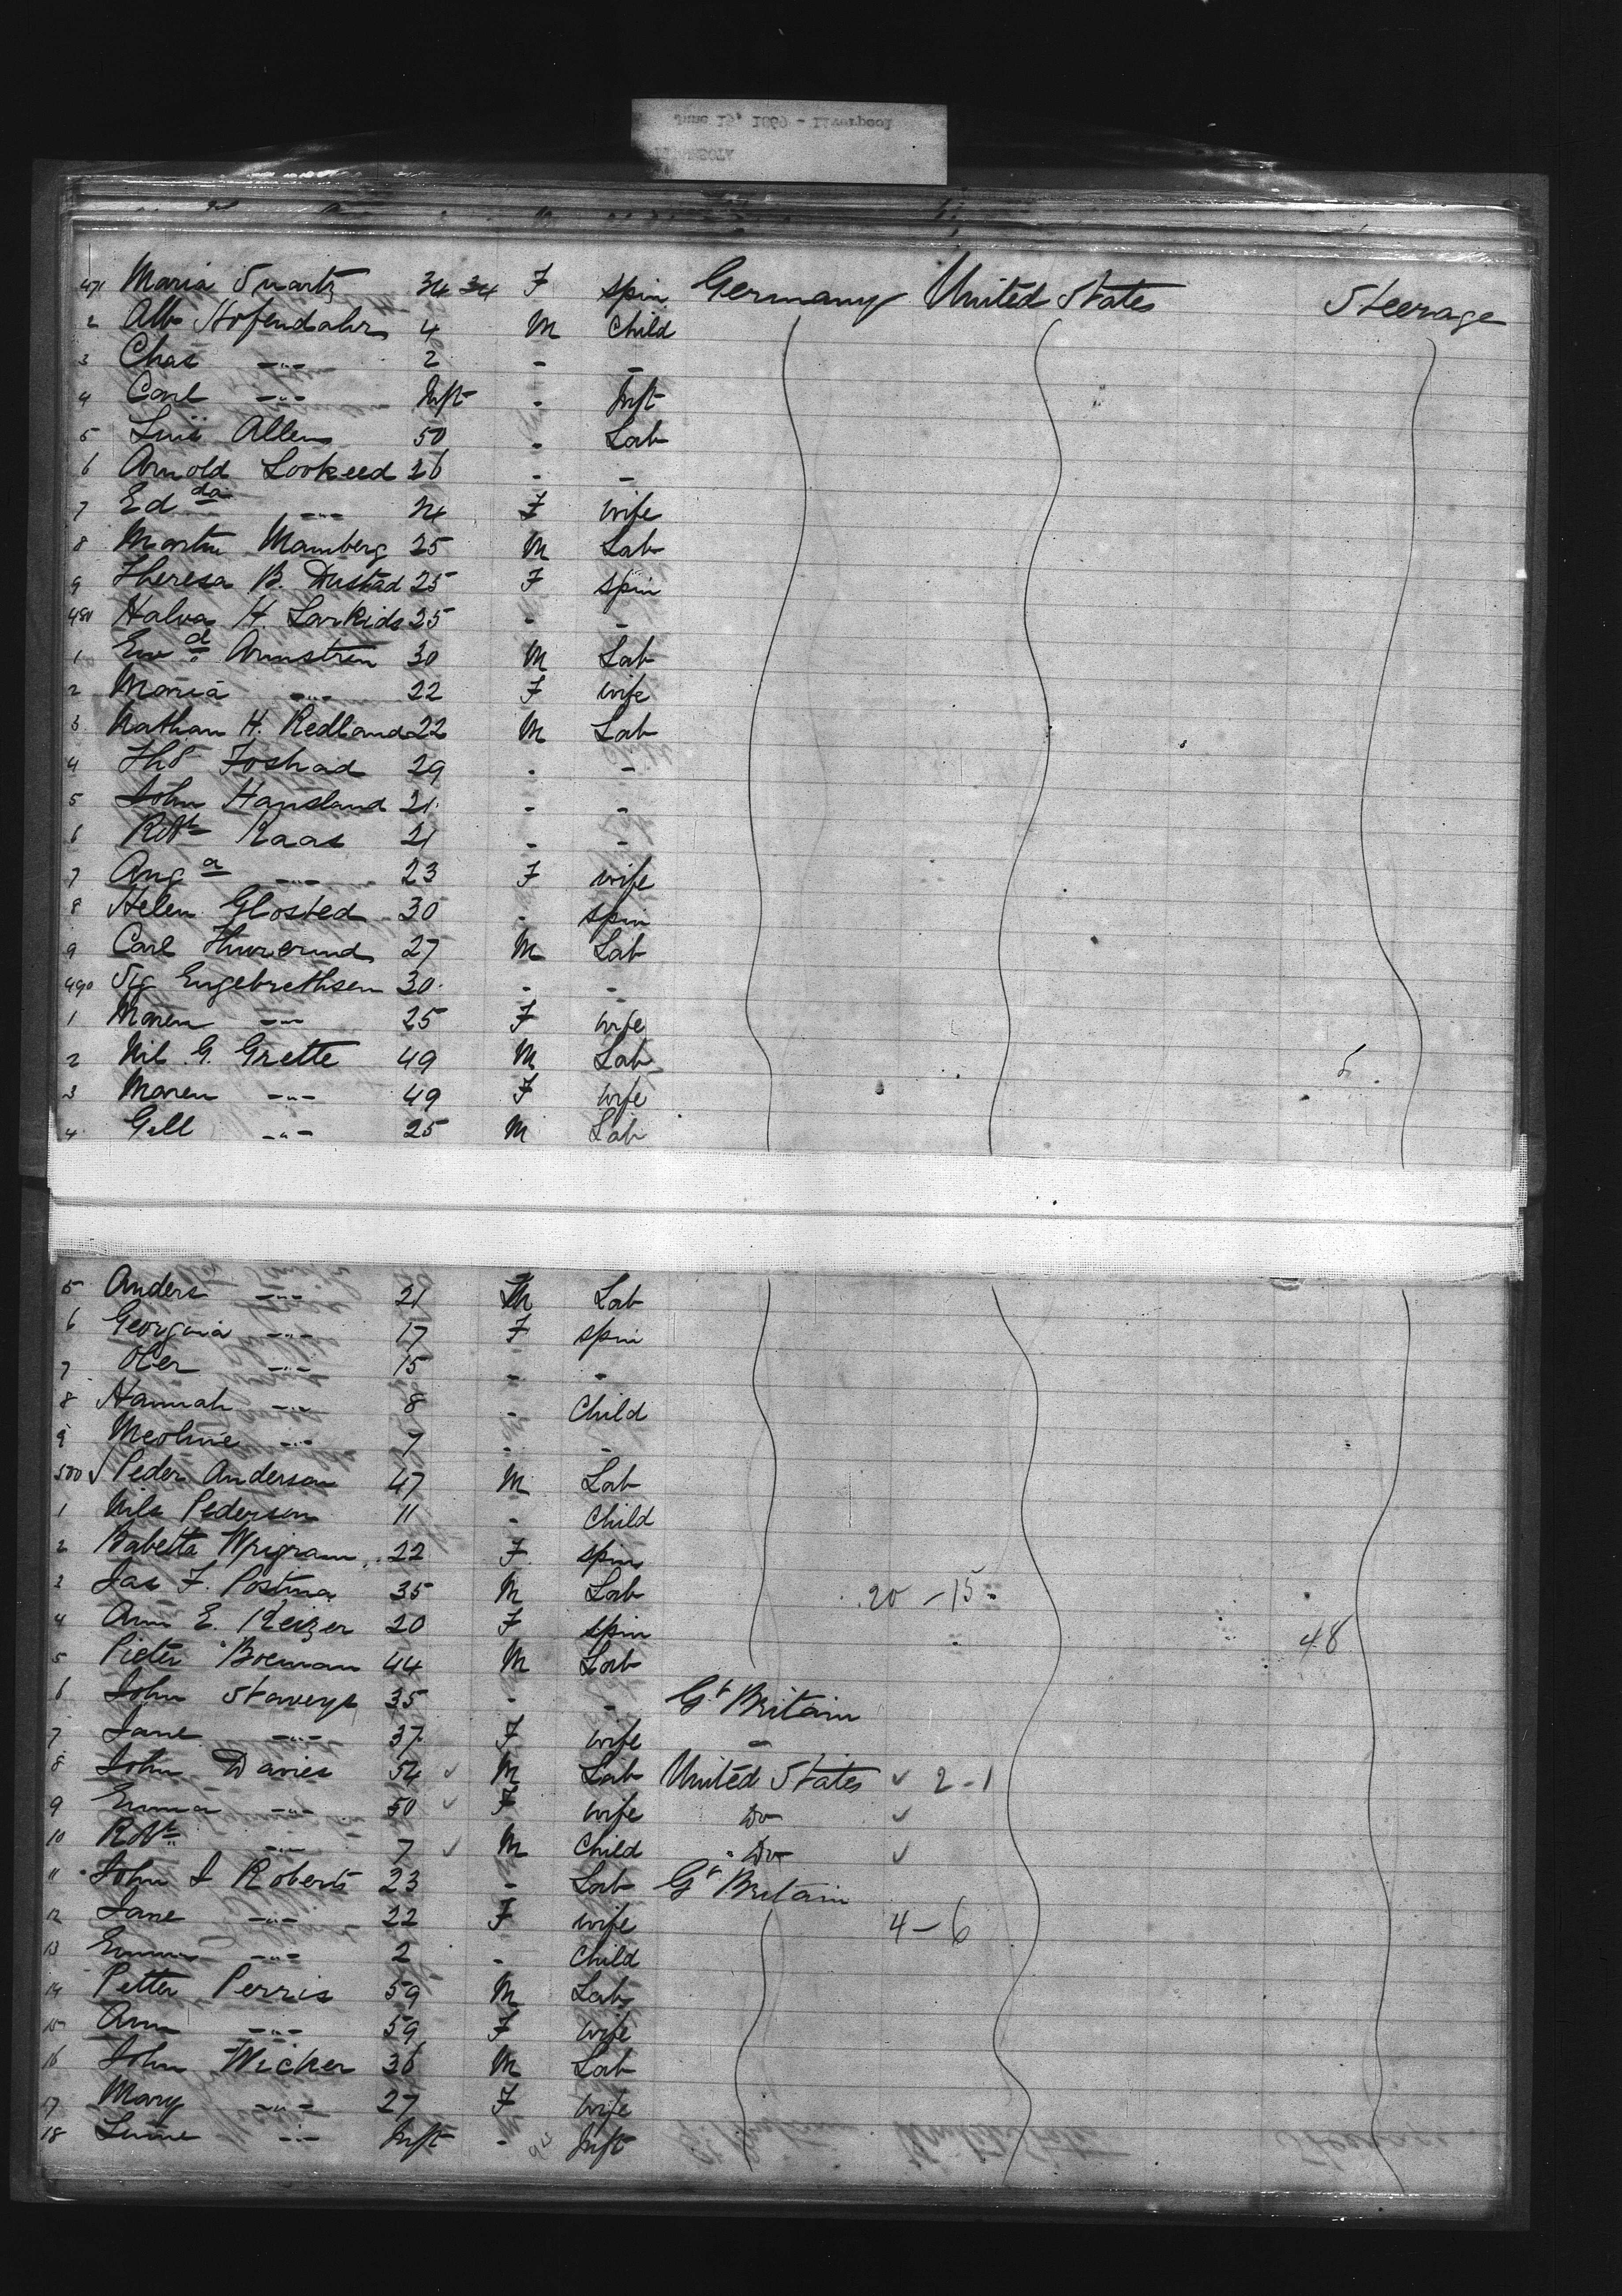 June 15, 1869 - Liverpool
471 Maria Swartz 34 34 F Spin Germany United States Steerage
2 Alb Hofendahr 4 M Child
3 Chas -"- 2 - -
4 Carl -"- Inft - Inft
5 Allen 50 - Lab
6 Arnold Lookeed 26 - -
7 Edda -"- 24 F wife
8 Martin Mamberg 25 M Lab
9 Theresa B. Dustad 25 F spin
480 Halva H. Larkids 25 - -
1 Ewd Armstrin 30 M Lab
2 Maria -"- 22 F wife
3 Nathan H. Redland 22 M Lab
4 Thos Foshad 29 - -
5 John Hansland 21 - -
6 Robt Raas 21 - -
7 Auga -"- 23 F wife
8 Helen Glosted 30 - spin
9 Carl 27 M Lab
490 Sig Engebrethsen 30 - -
1 Maren -"- 25 F wife
2 Nil G. Grette 49 M Lab
3 Maren -"- 49 F wife
4 Gell -"- 25 M Lab
5 Anders -"- 21 M Lab
6 Georgina -"- 17 F spin
7 Ober -"- 15 - -
8 Hannah -"- 8 - Child
9 Meoline -"- 7 - -
500 √ Peder Anderson 47 M Lab
1 Nils Pederson 11 - Child
2 Babetta Wrigram 22 F spin
3 Jas F. Postma 35 M Lab 20 - 15
4 Ann E. Keizer 20 F spin 48
5 Pieter Boeman 44 M Lab
6 John 35 - - Gt Britain
7 Jane -"- 37 F wife -
8 John Davies 54 ✓ M Lab United States ✓ 2-1
9 Emma -"- 50 ✓ F wife Do ✓
10 Robt -"- 7 ✓ M Child Do ✓
11 John J Roberts 23 - Lab Gt Britain
12 Jane -"- 22 F wife 4-6
13 Emma -"- 2 - Child
14 Petter Perris 59 M Lab
15 Ann -"- 59 F wife
16 John Wicker 36 M Lab
17 Mary -"- 27 F wife
18 -"- Inft - Inft